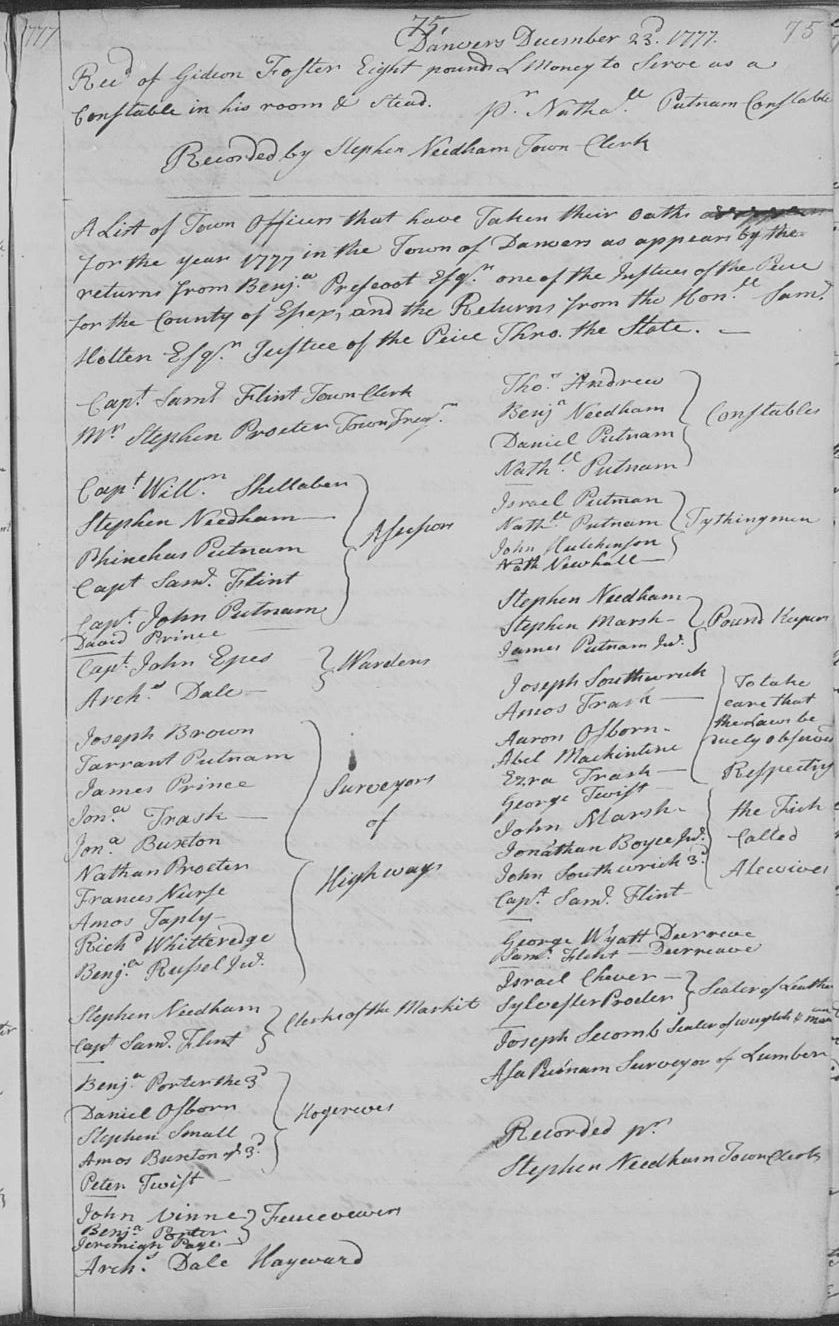 1777
75,
75
Danvers December 23d. 1777.
Recd of Gideon Foster Eight pounds L Money to Serve as a
Constable in his room & Stead. pr Nathall Putnam Constable
Recorded by Stephen Needham Town Clerk
A List of Town Officers that have Taken their Oaths
for the year 1777 in the Town of Danvers as appears by the
returns from Benja Prescoot Esqr one of the Justices of the Peice
for the County of Essex, and the Returns from the Honle Saml
Holten Esqr Justice of the Peice Thro. the State. —
Capt Saml Flint Town Clerk
Mr Stephen Procter Town Treqr
Capt Willm Shillaber
Stephen Needham
Phinehas Putnam
Capt Saml Flint
Capt John Putnam
David Prince
Assessors
Capt John Epes
Archs Dale
Wardens
Joseph Brown
Tarrant Putnam
James Prince
Jona Trask
Jona Buxton
Nathan Procter
Frances Nurse
Amos Taply
Richd Whitteredge
Benja Russel Jur.
Surveyors
of
Highways
Stephen Needham
Capt Saml Flint
Clerks of the Markit
Benja Porter the 3d
Daniel Osborn
Stephen Small
Amos Buxton 3d
Peter Twist
Hogreves
John Vinne
Benja Porter
Jeremiah Page
Fencevewers
Archs Dale Hayward
Thos Andrew
Benja Needham
Daniel Putnam
Nathll Putnam
Constables
Israel Putnam
Nathll Putnam
John Hutchinson
Nath Newhall
Tythingmen
Stephen Needham
Stephen Marsh
James Putnam Jur.
Pound Keepers
Joseph Southwick
Amos Trask
Aaron Osborn
Abel Mackintire
Ezra Trask
George Twist
John Marsh
Jonathan Boyce Jur.
John Southwick 3d
Capt Saml Flint
To take
care that
the Laws be
duely observed
Respecting
the Fish
Called
Alewives
George Wyatt Deerreve
Saml Flint — Deerreave
Israel Chever
Sylvester Procter
Sealer of Leather
Joseph Secomb Sealer of weights &
Asa Putnam Surveyor of Lumber
Recorded pr
Stephen Needham Town Clerk